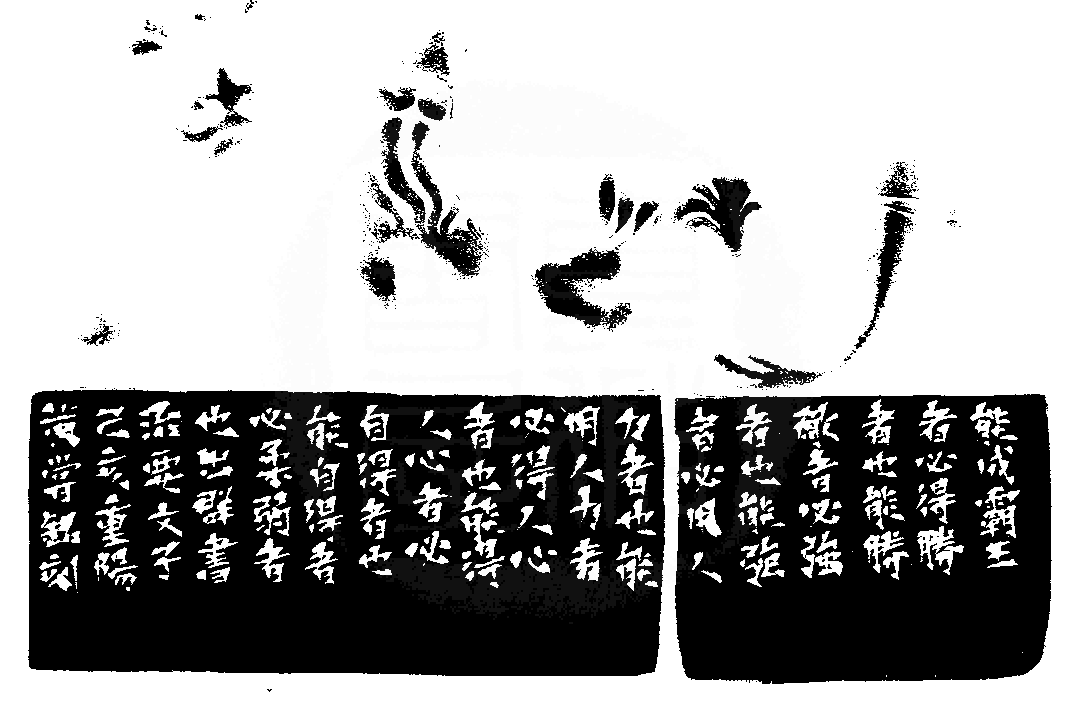 能成霸王
者必得勝
者也能勝
敵者必強
者也能強
者必用人
力者也能
用人力者
必得人心
者也能得
人心者必
自得者也
能自得者
必柔弱者
也出群書
治要文子
己亥重陽
黃嘗銘刻